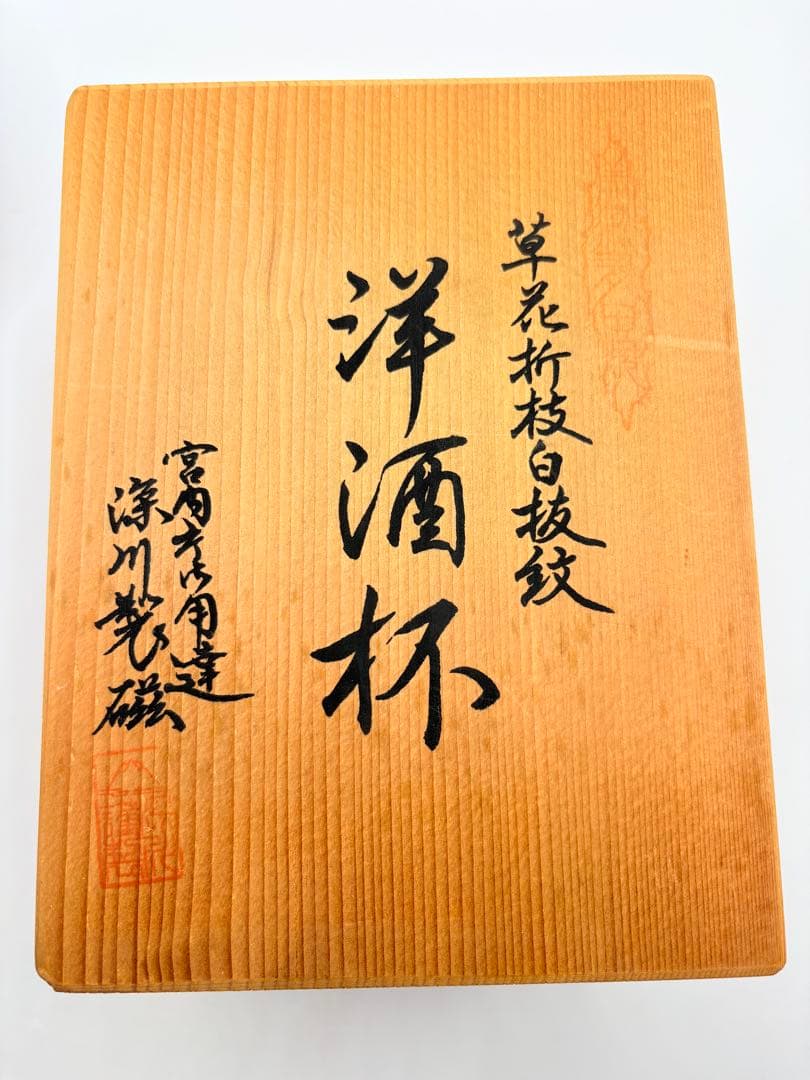 草花折枝白抜紋
洋酒杯
宮内庁御用達
深川製磁